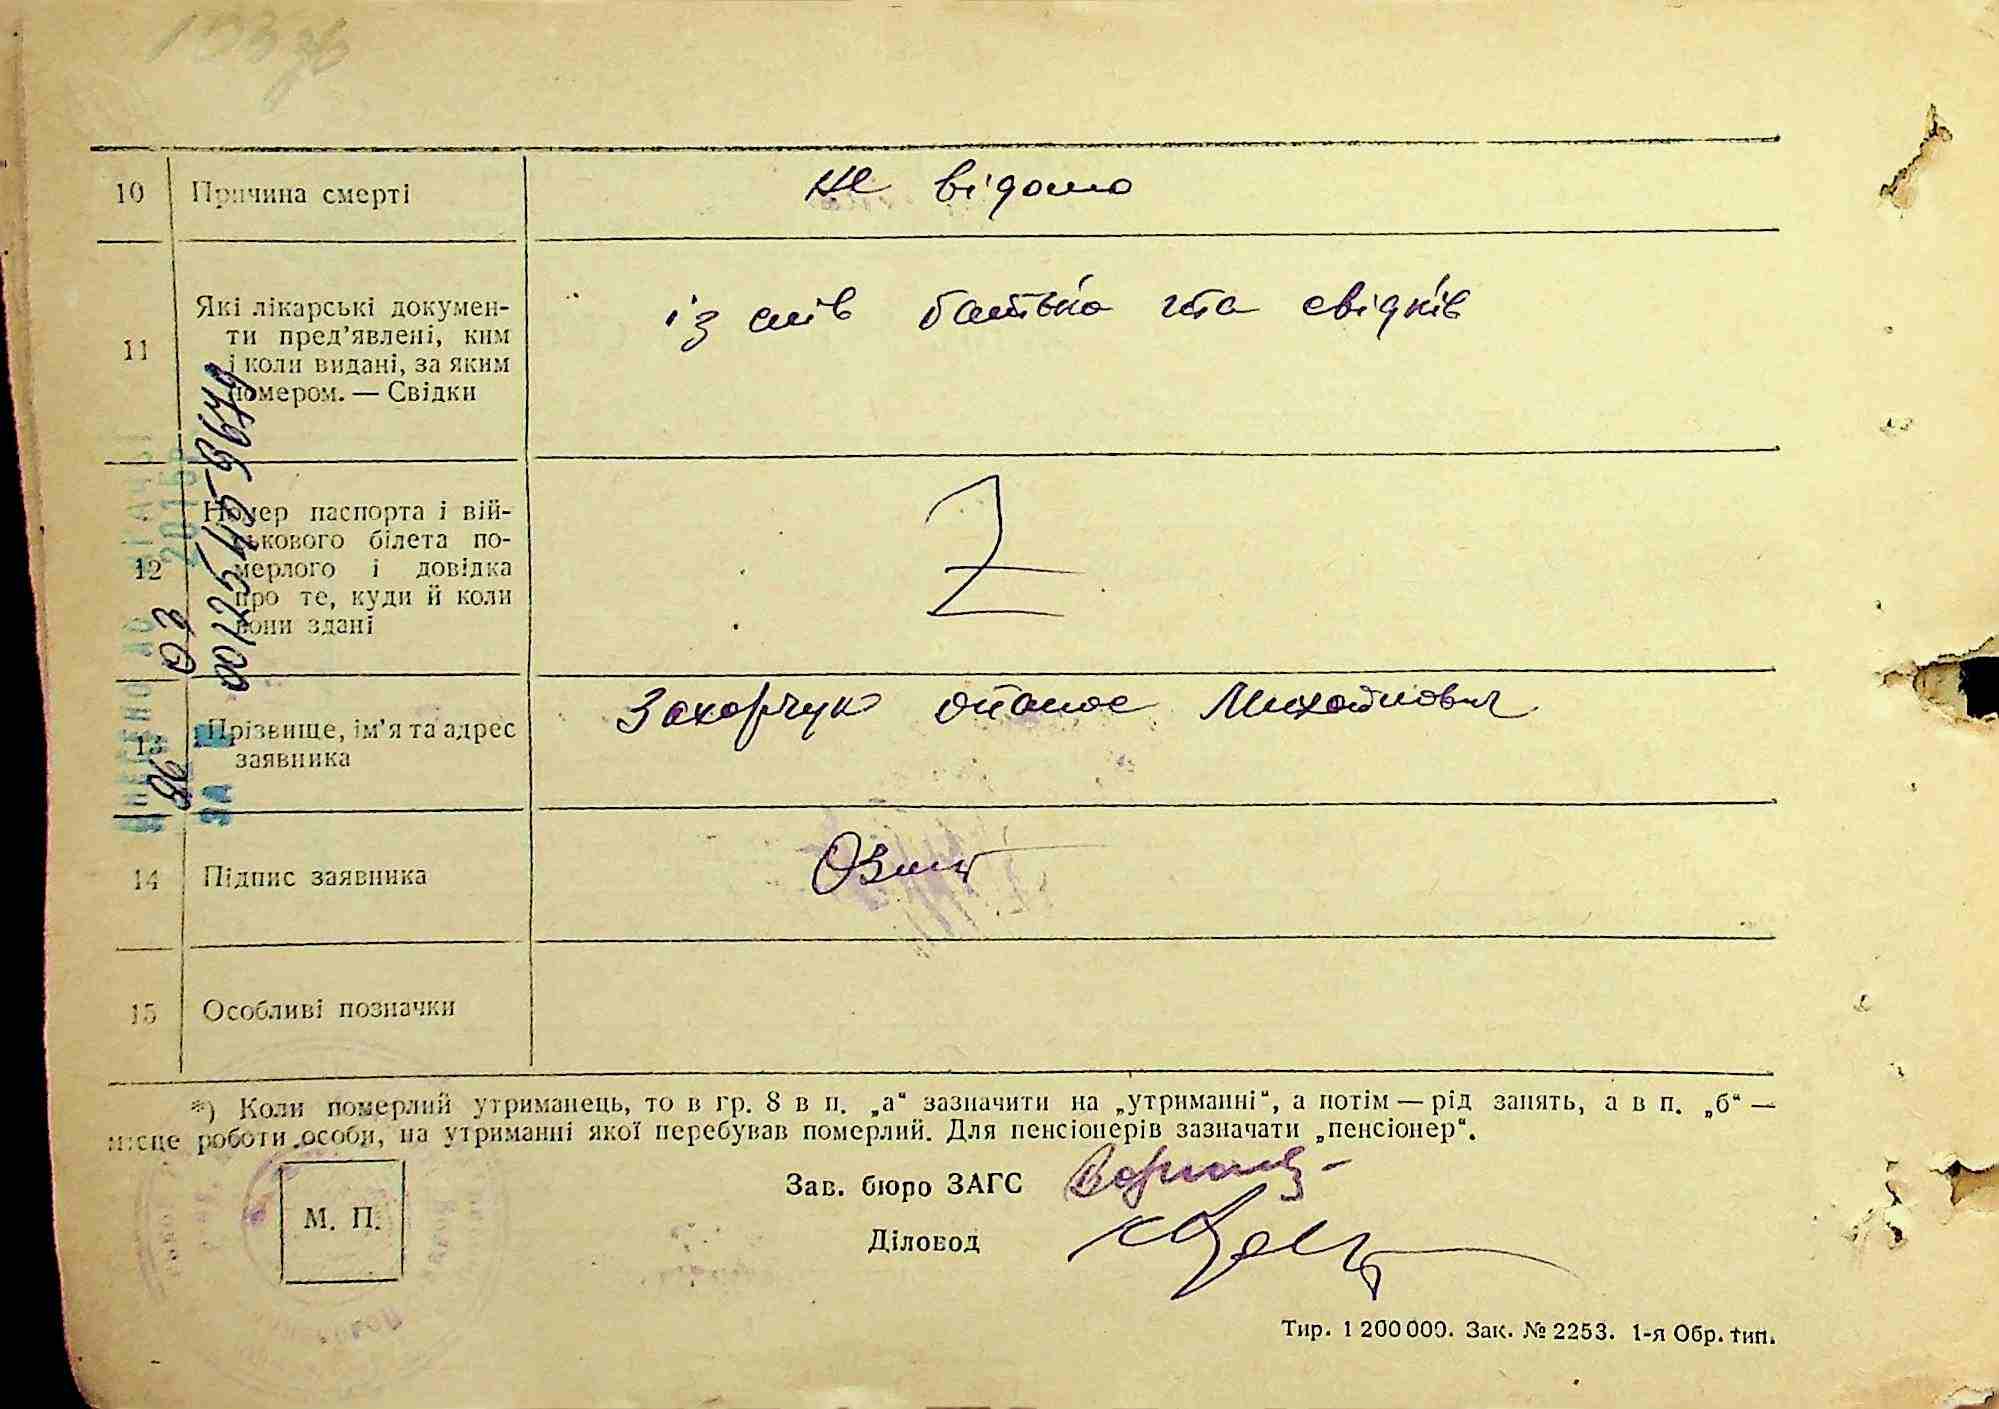 133 зв
10 Причина смерті не відомо
11 Які лікарські докумен-
ти пред’явлені, ким
і коли видані, за яким
номером. — Свідки
із слів батька та свідків
12 Номер паспорта і вій-
ськового білета по-
мерлого і довідка
про те, куди й коли
вони здані
13 Прізвище, ім’я та адрес
заявника
Захарчук Опанас Михайлович
14 Підпис заявника
15 Особливі позначки
*) Коли померлий утриманець, то в гр. 8 в п. „а“ зазначити на „утриманні“, а потім — рід занять, а в п. „б“ —
місце роботи особи, на утриманні якої перебував померлий. Для пенсіонерів зазначати „пенсіонер“.
Зав. бюро ЗАГС
М. П.
Діловод
Тир. 1 200 000. Зак. № 2253. 1-я Обр. тип.